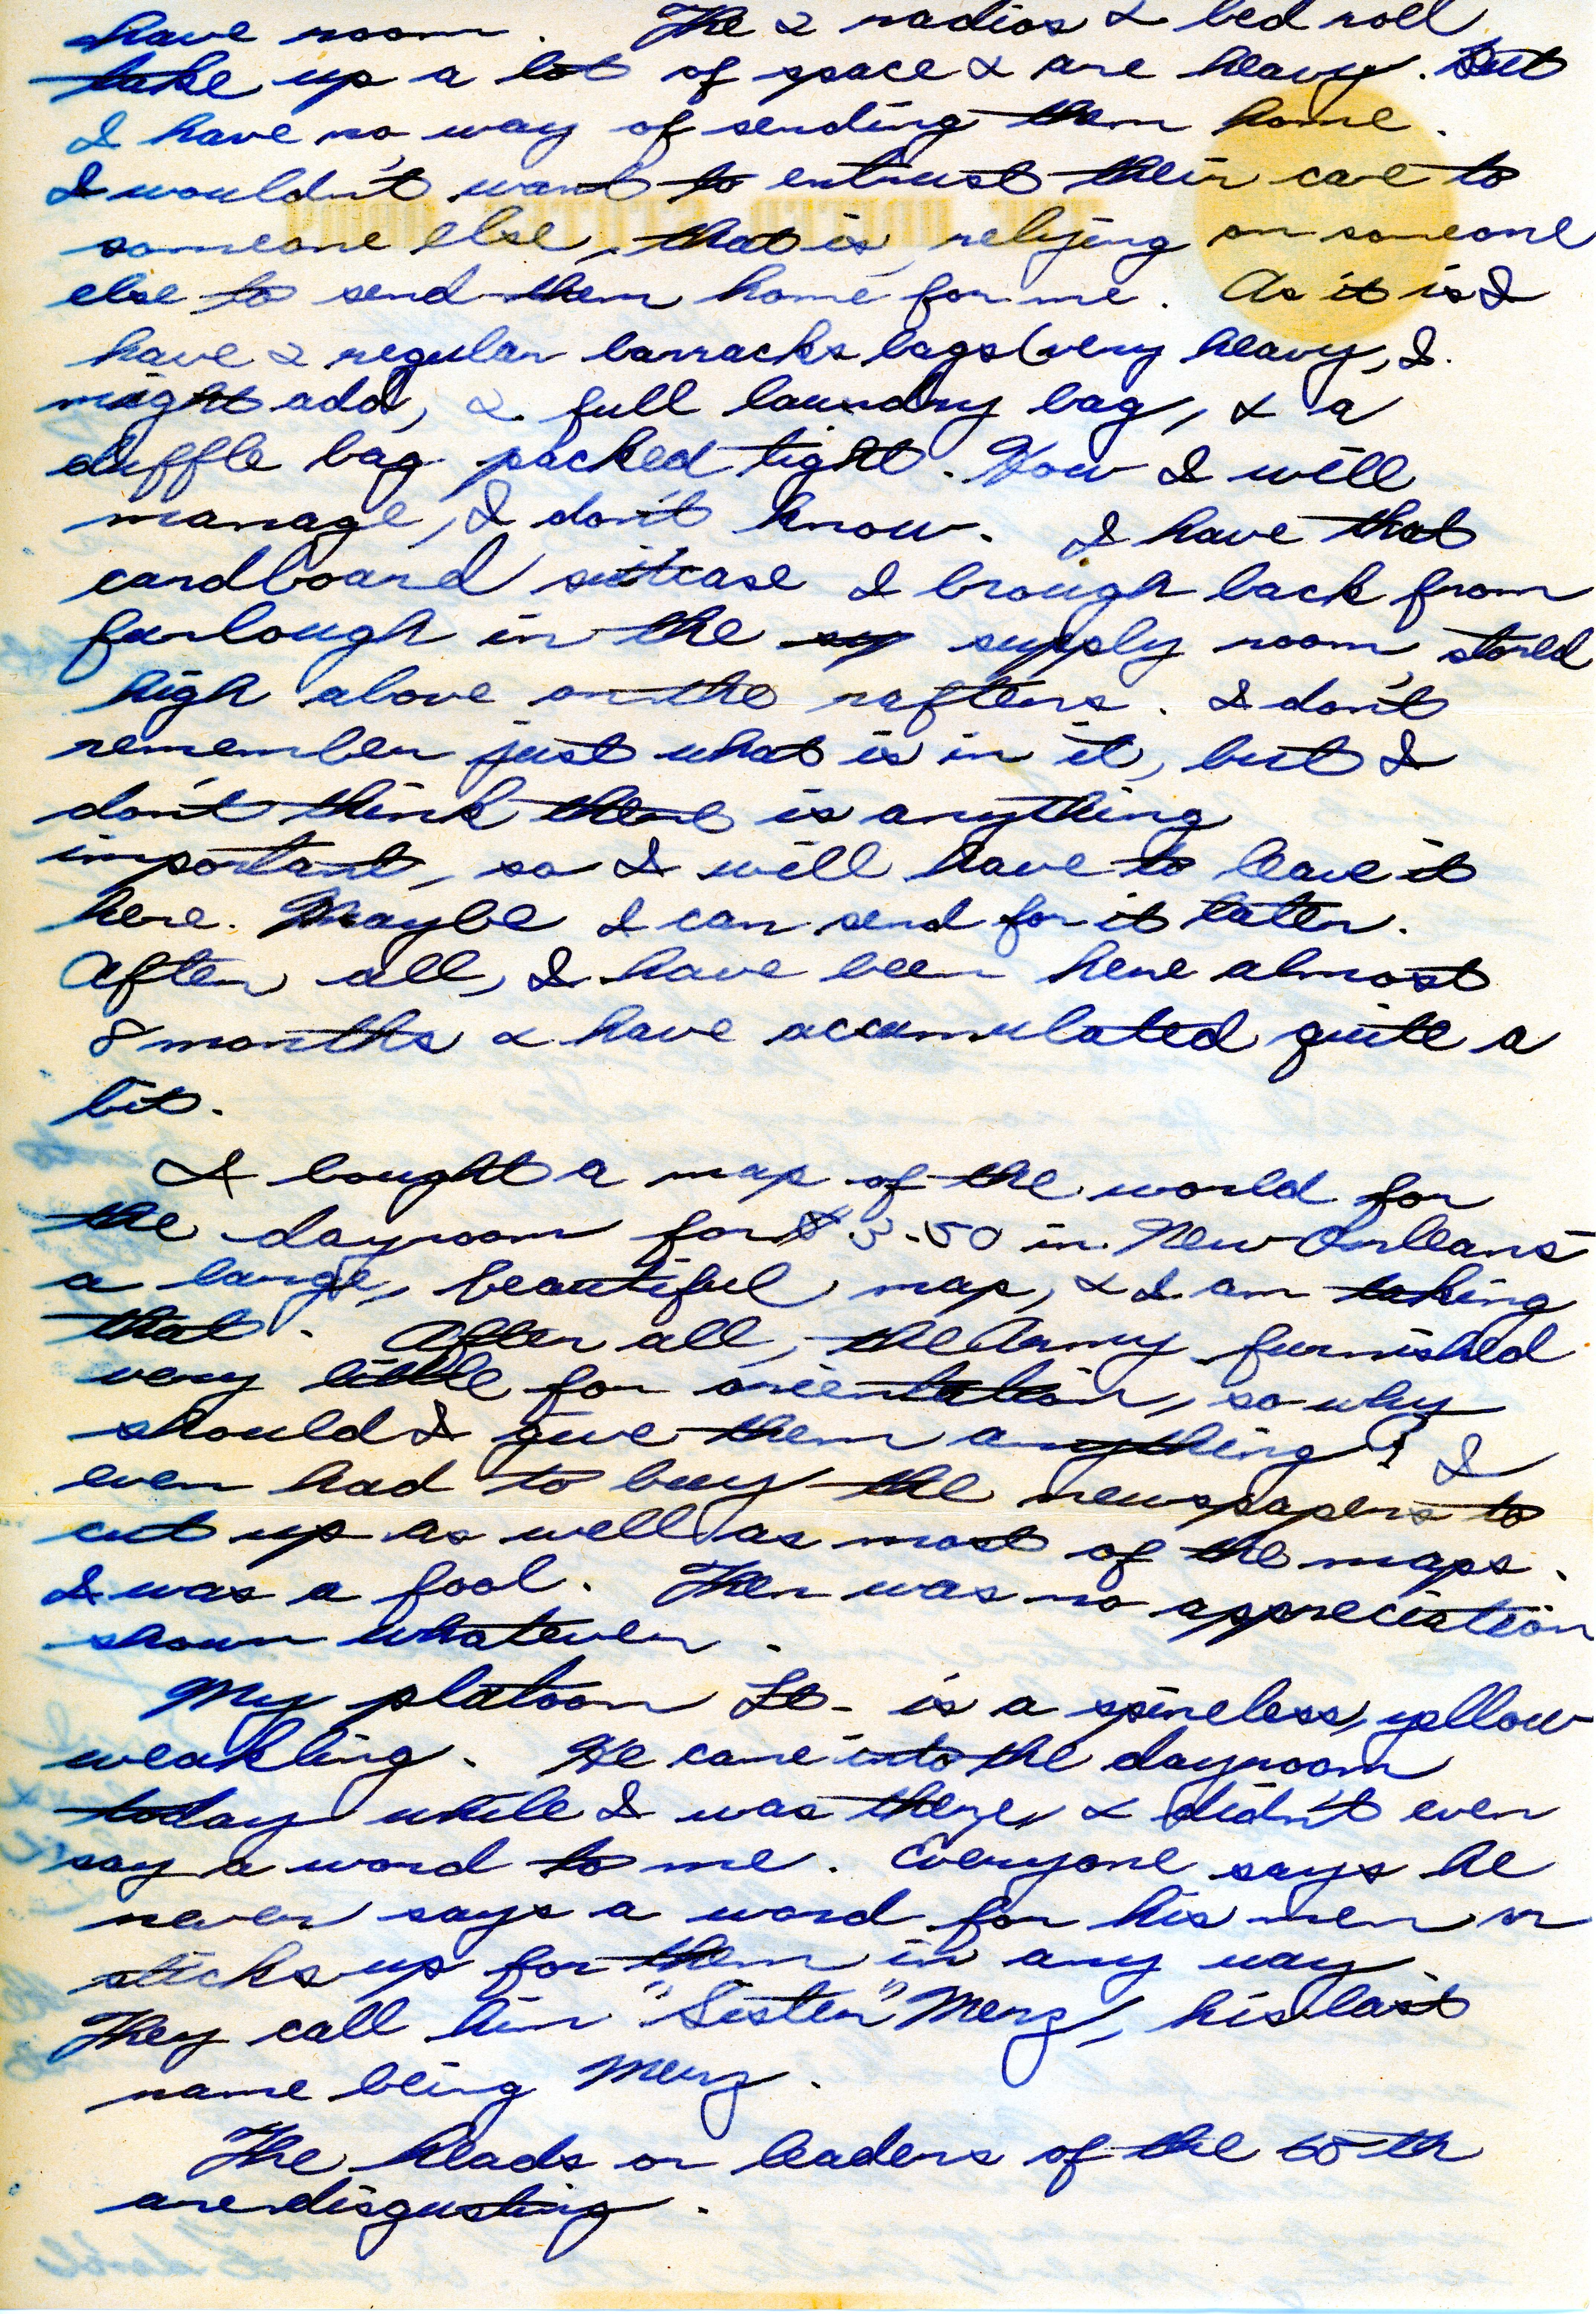 have room. The 2 radios & bed roll
take up a lot of space & are heavy. But
I have no way of sending them home.
I wouldn't want to entrust their care to
someone else, that is, relying on someone
else to send them home for me. As it is I
have 2 regular barracks bags (very heavy, I
might add, 2 full laundry bag, & a
duffle bag packed tight. How I will
manage, I don't know. I have that
cardboard suitcase I brough back from
furlough in the supply room, stored
high above on the rafters. I don't
remember just what is in it, but I
don't think there is anything
important, so I will have to leave it
here. Maybe I can send for it later.
After all, I have been here almost
8 months & have accumulated quite a
bit.
I bought a map of the world for
the dayroom for $3.50 in New Orleans
a large, beautiful map, & I am taking
that. After all, the Army furnished
very little for orientation, so why
should I give them anything? I
even had to buy the newspapers to
cut up as well as most of the maps.
I was a fool. Ther was no appreciation
shown whatever.
My platoon Lt. is a spineless, yellow
weakling. He came into the dayroom
today while I was there, & didn't even
say a word to me. Everyone says he
never says a word for his men or
sticks up for them in any way.
They call him "Sister" Merz, his last
name being Merz.
The heads or leaders of the 65th
are disgusting.